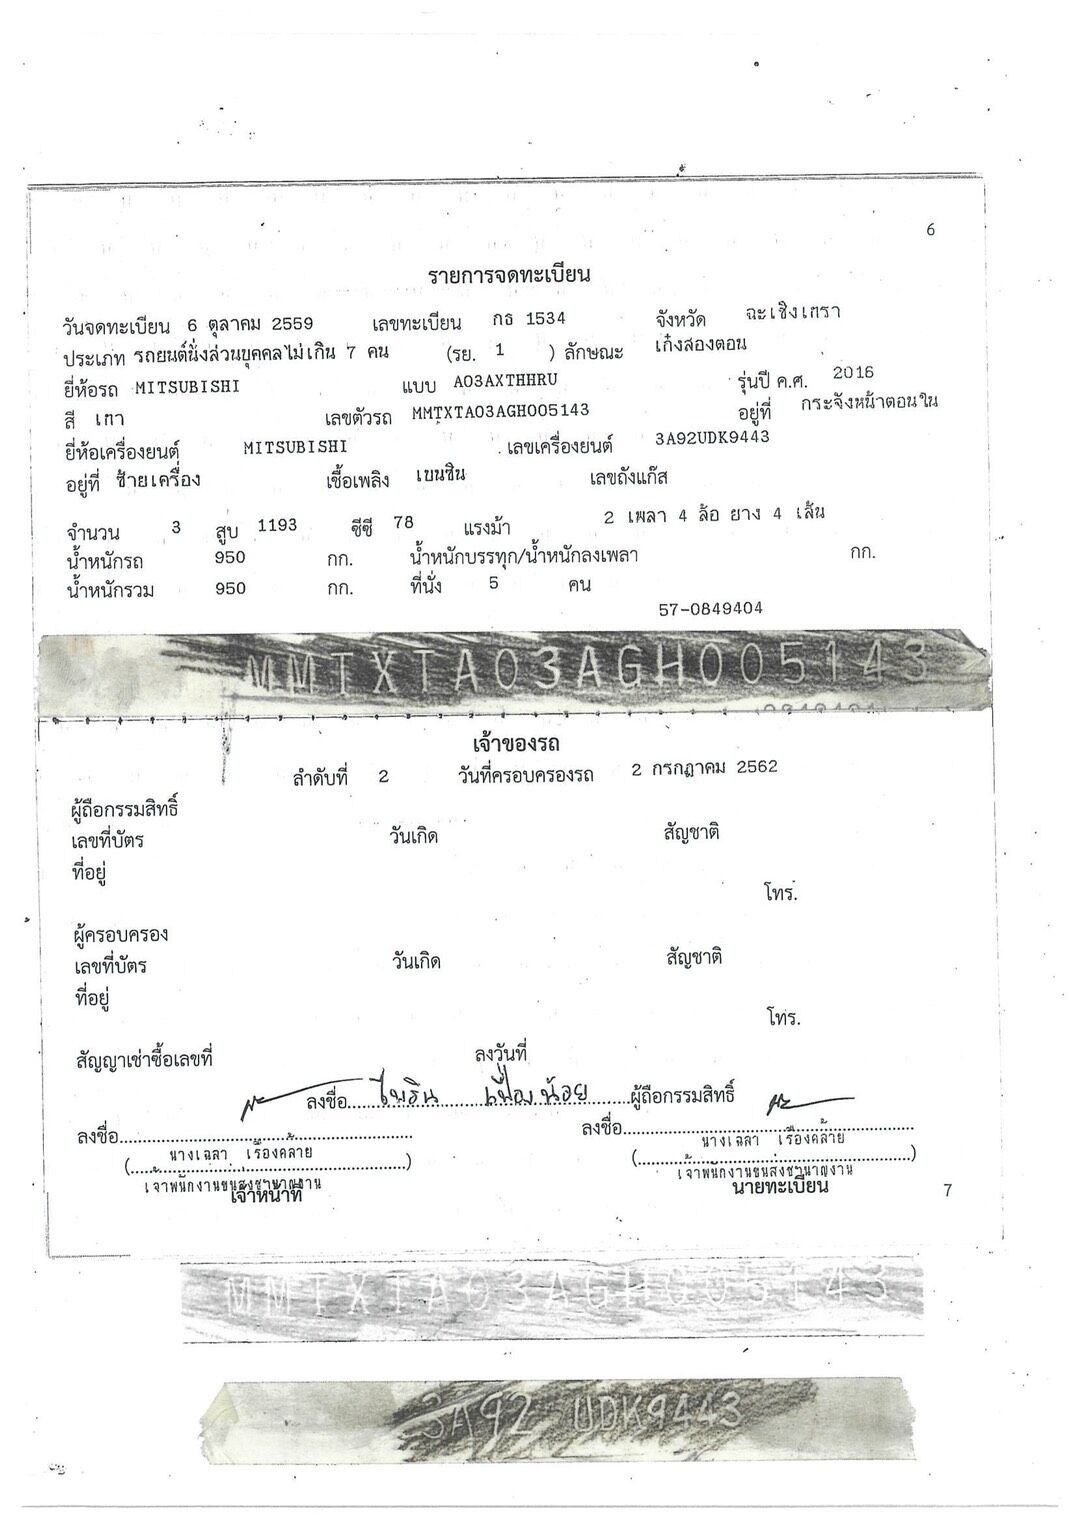 6
รายการจดทะเบียน
วันจดทะเบียน 6 ตุลาคม 2559 เลขทะเบียน กธ 1534 จังหวัด ฉะเชิงเทรา
ประเภท รถยนต์นั่งส่วนบุคคลไม่เกิน 7 คน (รย. 1 ) ลักษณะ เก๋งสองตอน
ยี่ห้อรถ MITSUBISHI แบบ A03AXTHHRU รุ่นปี ค.ศ. 2016
สี เทา เลขตัวรถ MMTXTA03AGH005143 อยู่ที่ กระจังหน้าตอนใน
ยี่ห้อเครื่องยนต์ MITSUBISHI เลขเครื่องยนต์ 3A92UDK9443
อยู่ที่ ซ้ายเครื่อง เชื้อเพลิง เบนซิน เลขถังแก๊ส
จำนวน 3 สูบ 1193 ซีซี 78 แรงม้า 2 เพลา 4 ล้อ ยาง 4 เส้น
น้ำหนักรถ 950 กก. น้ำหนักบรรทุก/น้ำหนักลงเพลา กก.
น้ำหนักรวม 950 กก. ที่นั่ง 5 คน
57-0849404
MMTXTA03AGH005143
เจ้าของรถ
ลำดับที่ 2 วันที่ครอบครองรถ 2 กรกฎาคม 2562
ผู้ถือกรรมสิทธิ์
เลขที่บัตร วันเกิด สัญชาติ
ที่อยู่
โทร.
ผู้ครอบครอง
เลขที่บัตร วันเกิด สัญชาติ
ที่อยู่
โทร.
สัญญาเช่าซื้อเลขที่ ลงวันที่
ลงชื่อ ไพริน เฟื่องน้อย ผู้ถือกรรมสิทธิ์
ลงชื่อ ลงชื่อ
นางเฉลา เรืองคล้าย นางเฉลา เรืองคล้าย
(....................) (....................)
เจ้าพนักงานขนส่งชำนาญงาน เจ้าพนักงานขนส่งชำนาญงาน
เจ้าหน้าที่ นายทะเบียน
7
MMTXTA03AGH005143
3A92 UDK9443